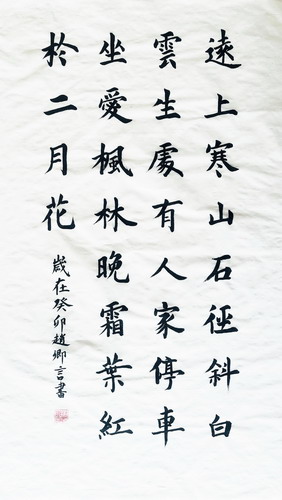 遠上寒山石径斜白
雲生處有人家停車
坐愛楓林晚霜葉紅
於二月花
歲在癸卯趙卿言書